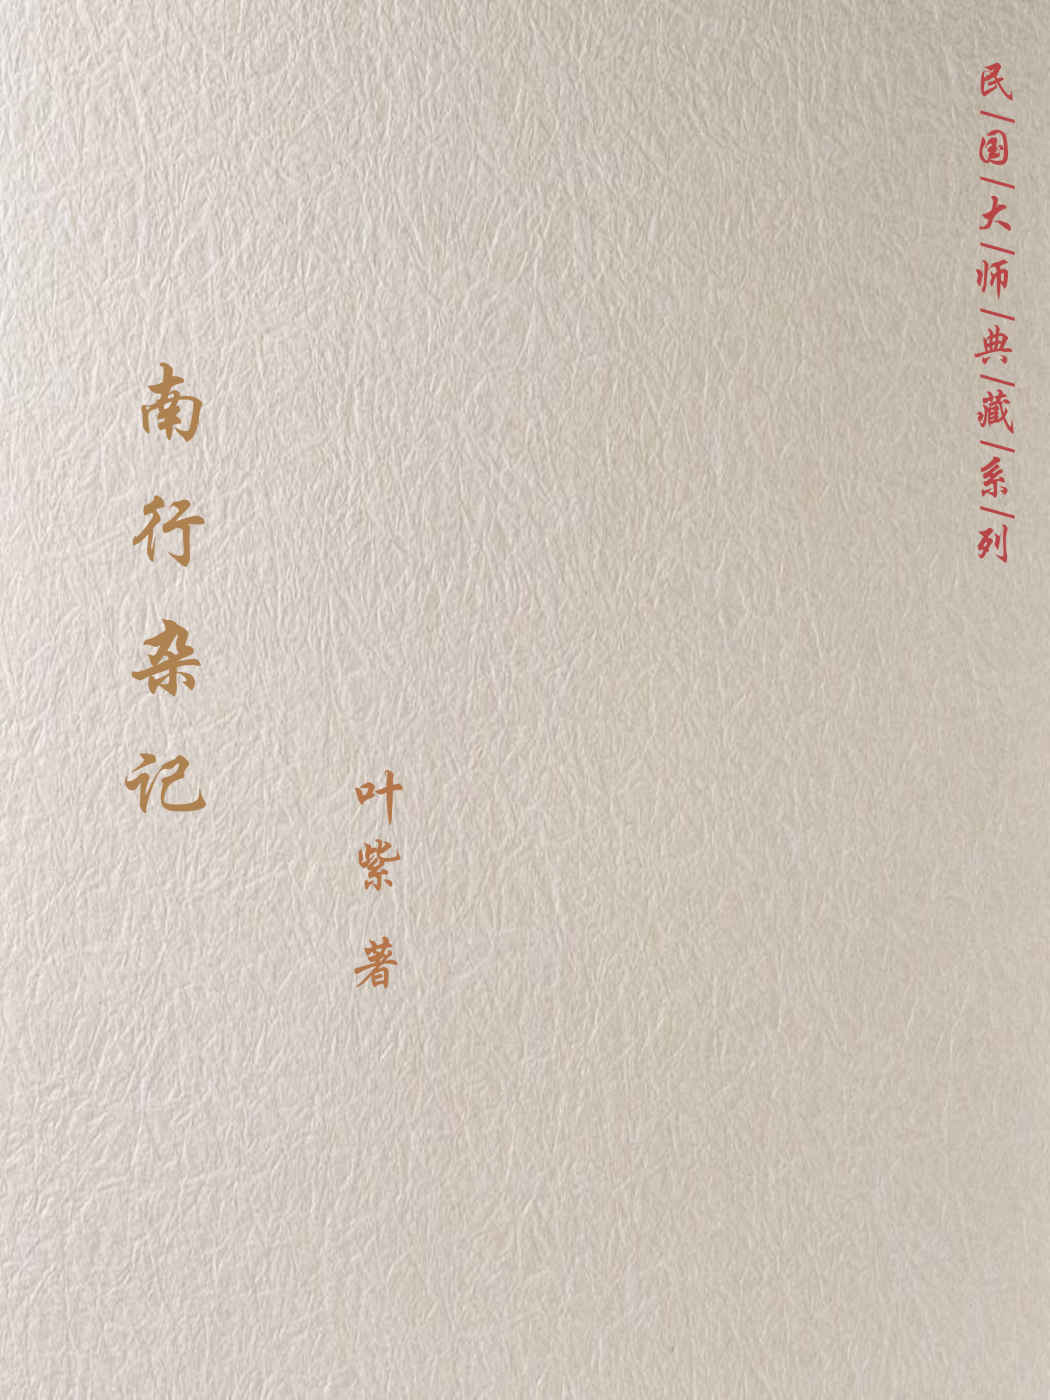 民|国|大|师|典|藏|系|列
南行杂记
叶紫 著